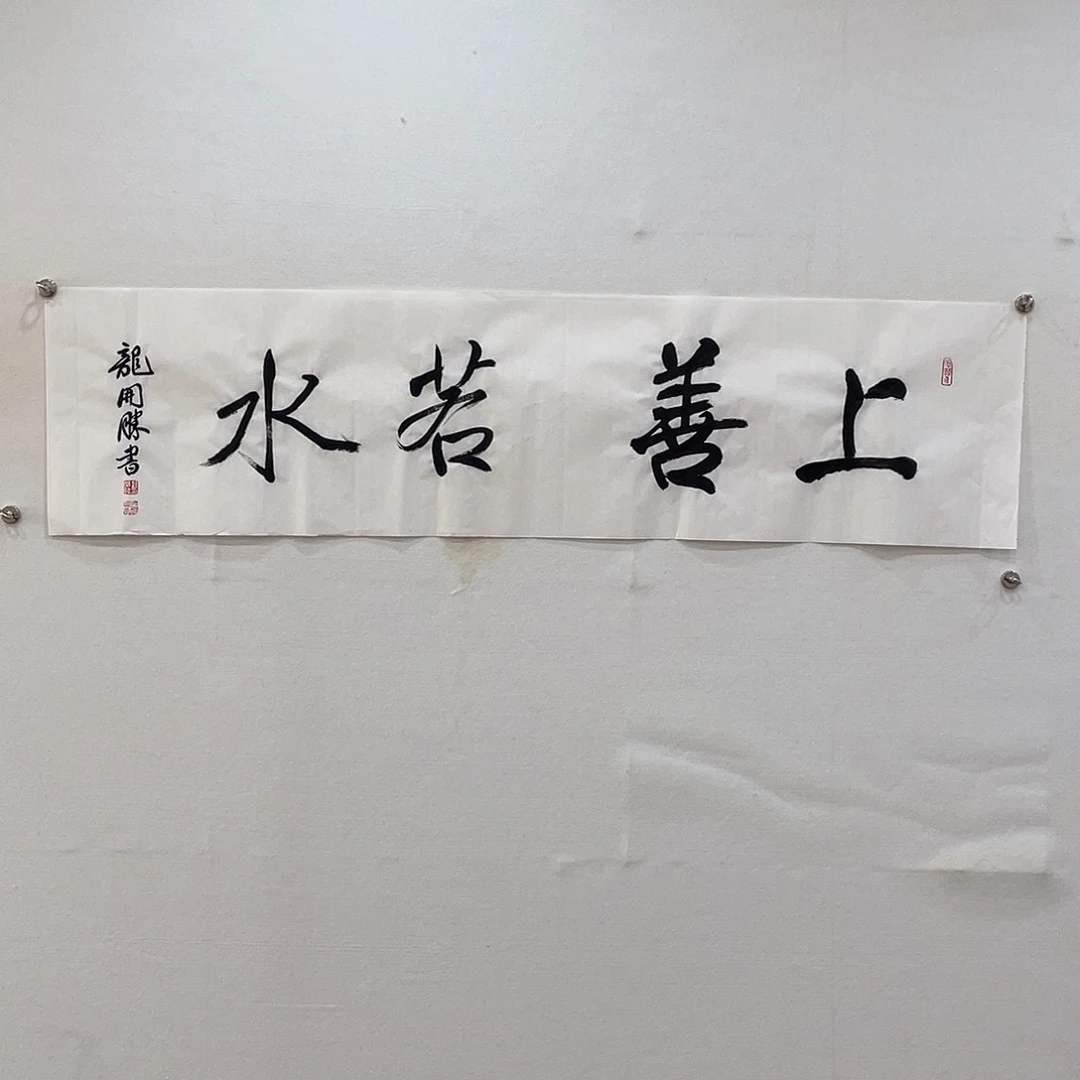 上善若水
龍開勝書